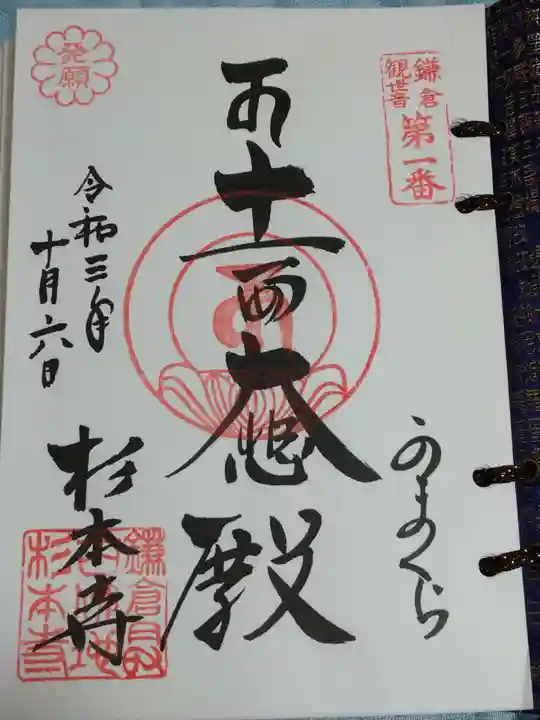 鎌倉
観世音
第一番
かまくら
十一面大悲殿
発願
令和三年
十月六日
杉本寺
鎌倉最
杉本寺